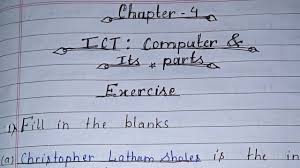 Chapter - 4
ICT : Computer &
Its parts
Exercise
1) Fill in the blanks
(a) Christopher Latham Shales is the in